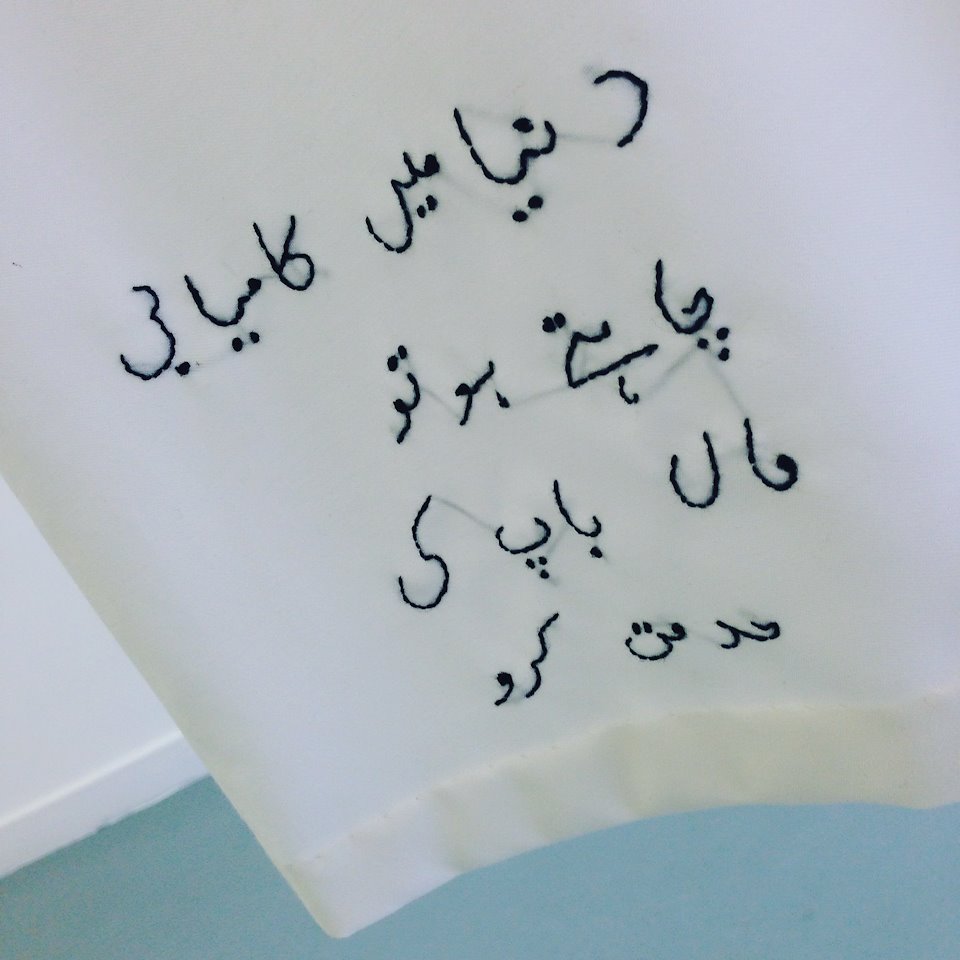 دنیا میں کامیابی
چاہتے ہو تو
ماں باپ کی
خدمت کرو